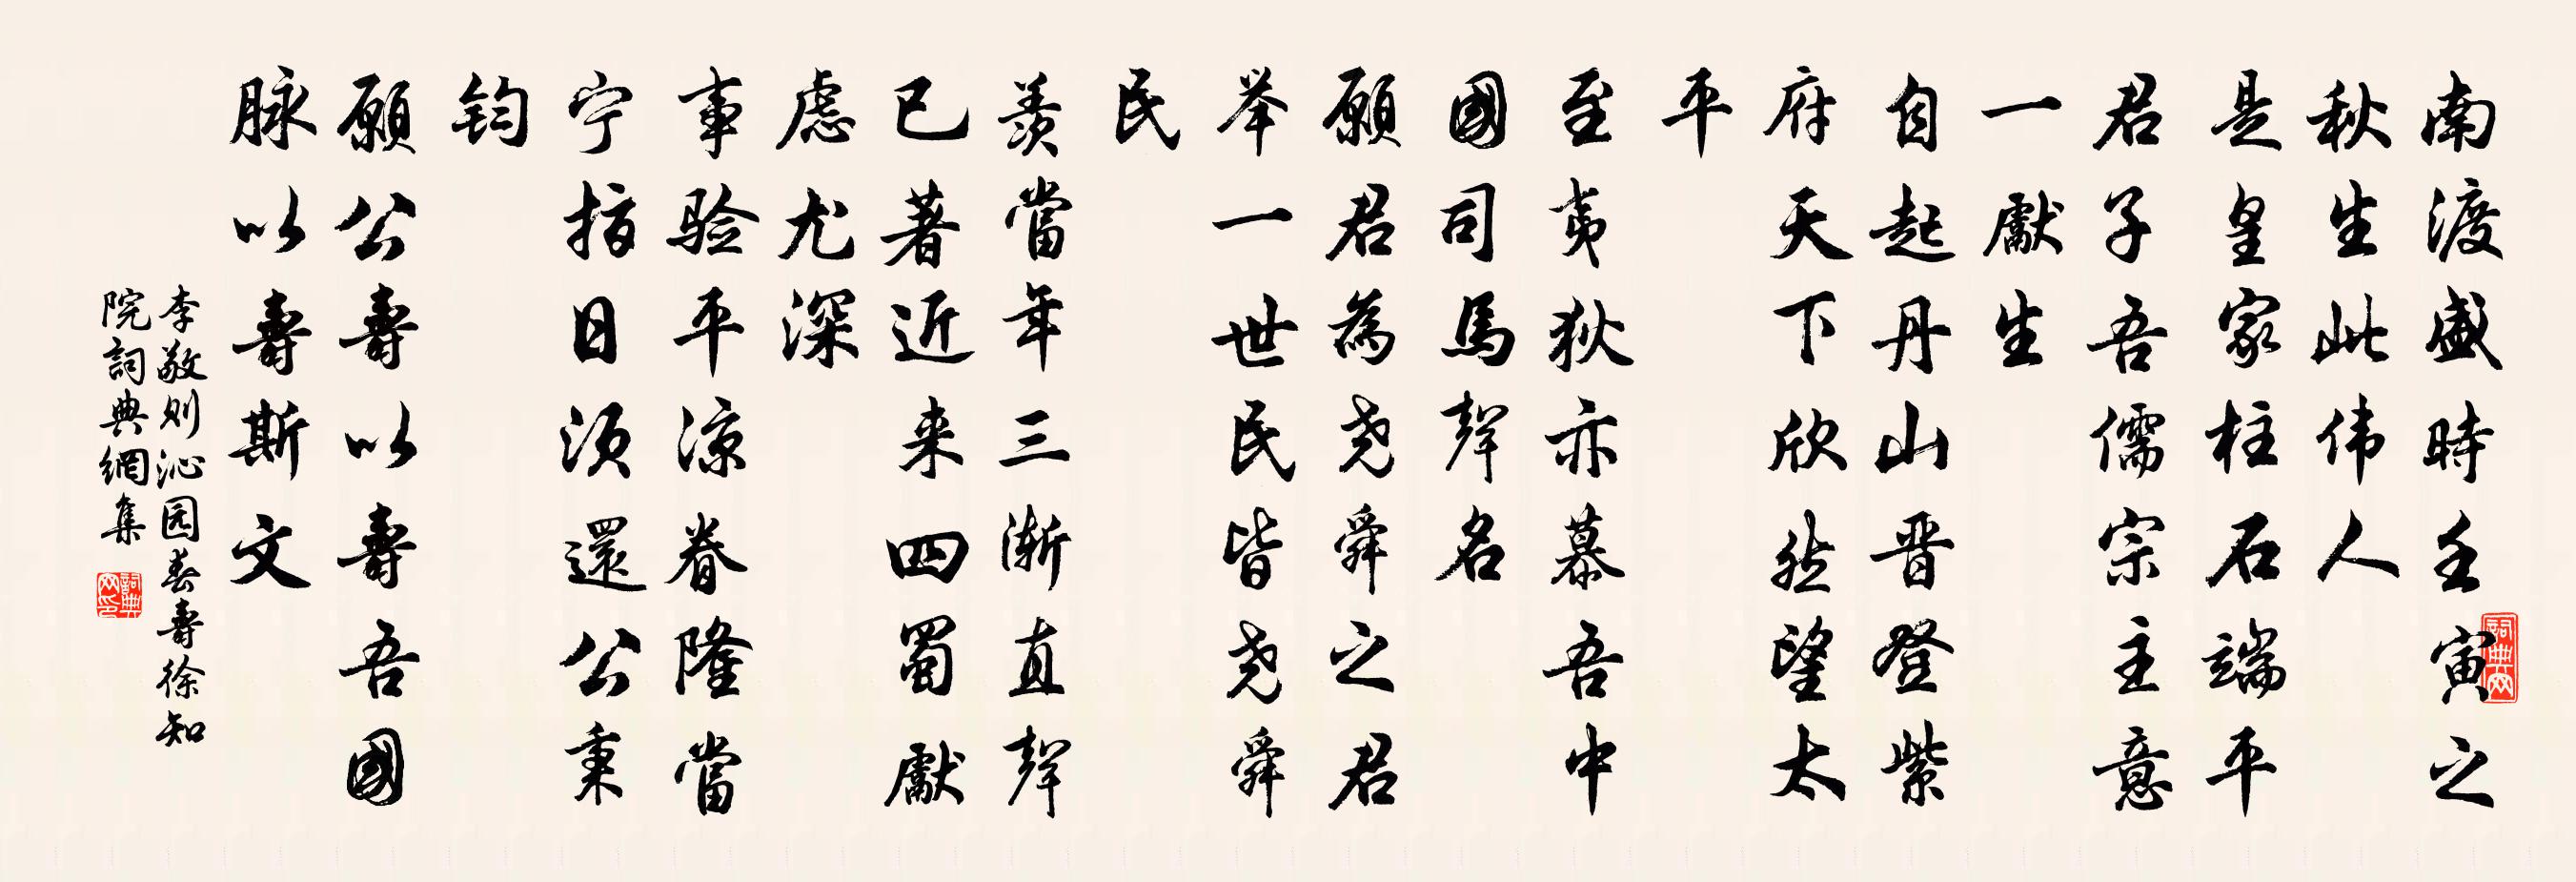 南渡盛時壬寅之
秋生此伟人
是皇家柱石端平
君子吾儒宗主意
一獻生
自起丹山晋登紫
府天下欣然望太
平
至夷狄亦慕吾中
國司馬聲名
願君為尧舜之君
举一世民皆尧舜
民
羨當年三渐直聲
已著近来四蜀獻
虑尤深
事验平凉眷隆當
宁指日须還公秉
钧
願公壽以壽吾國
脉以壽斯文
李敬则沁园春壽徐知
院詞典網集
詞典网
詞典网印